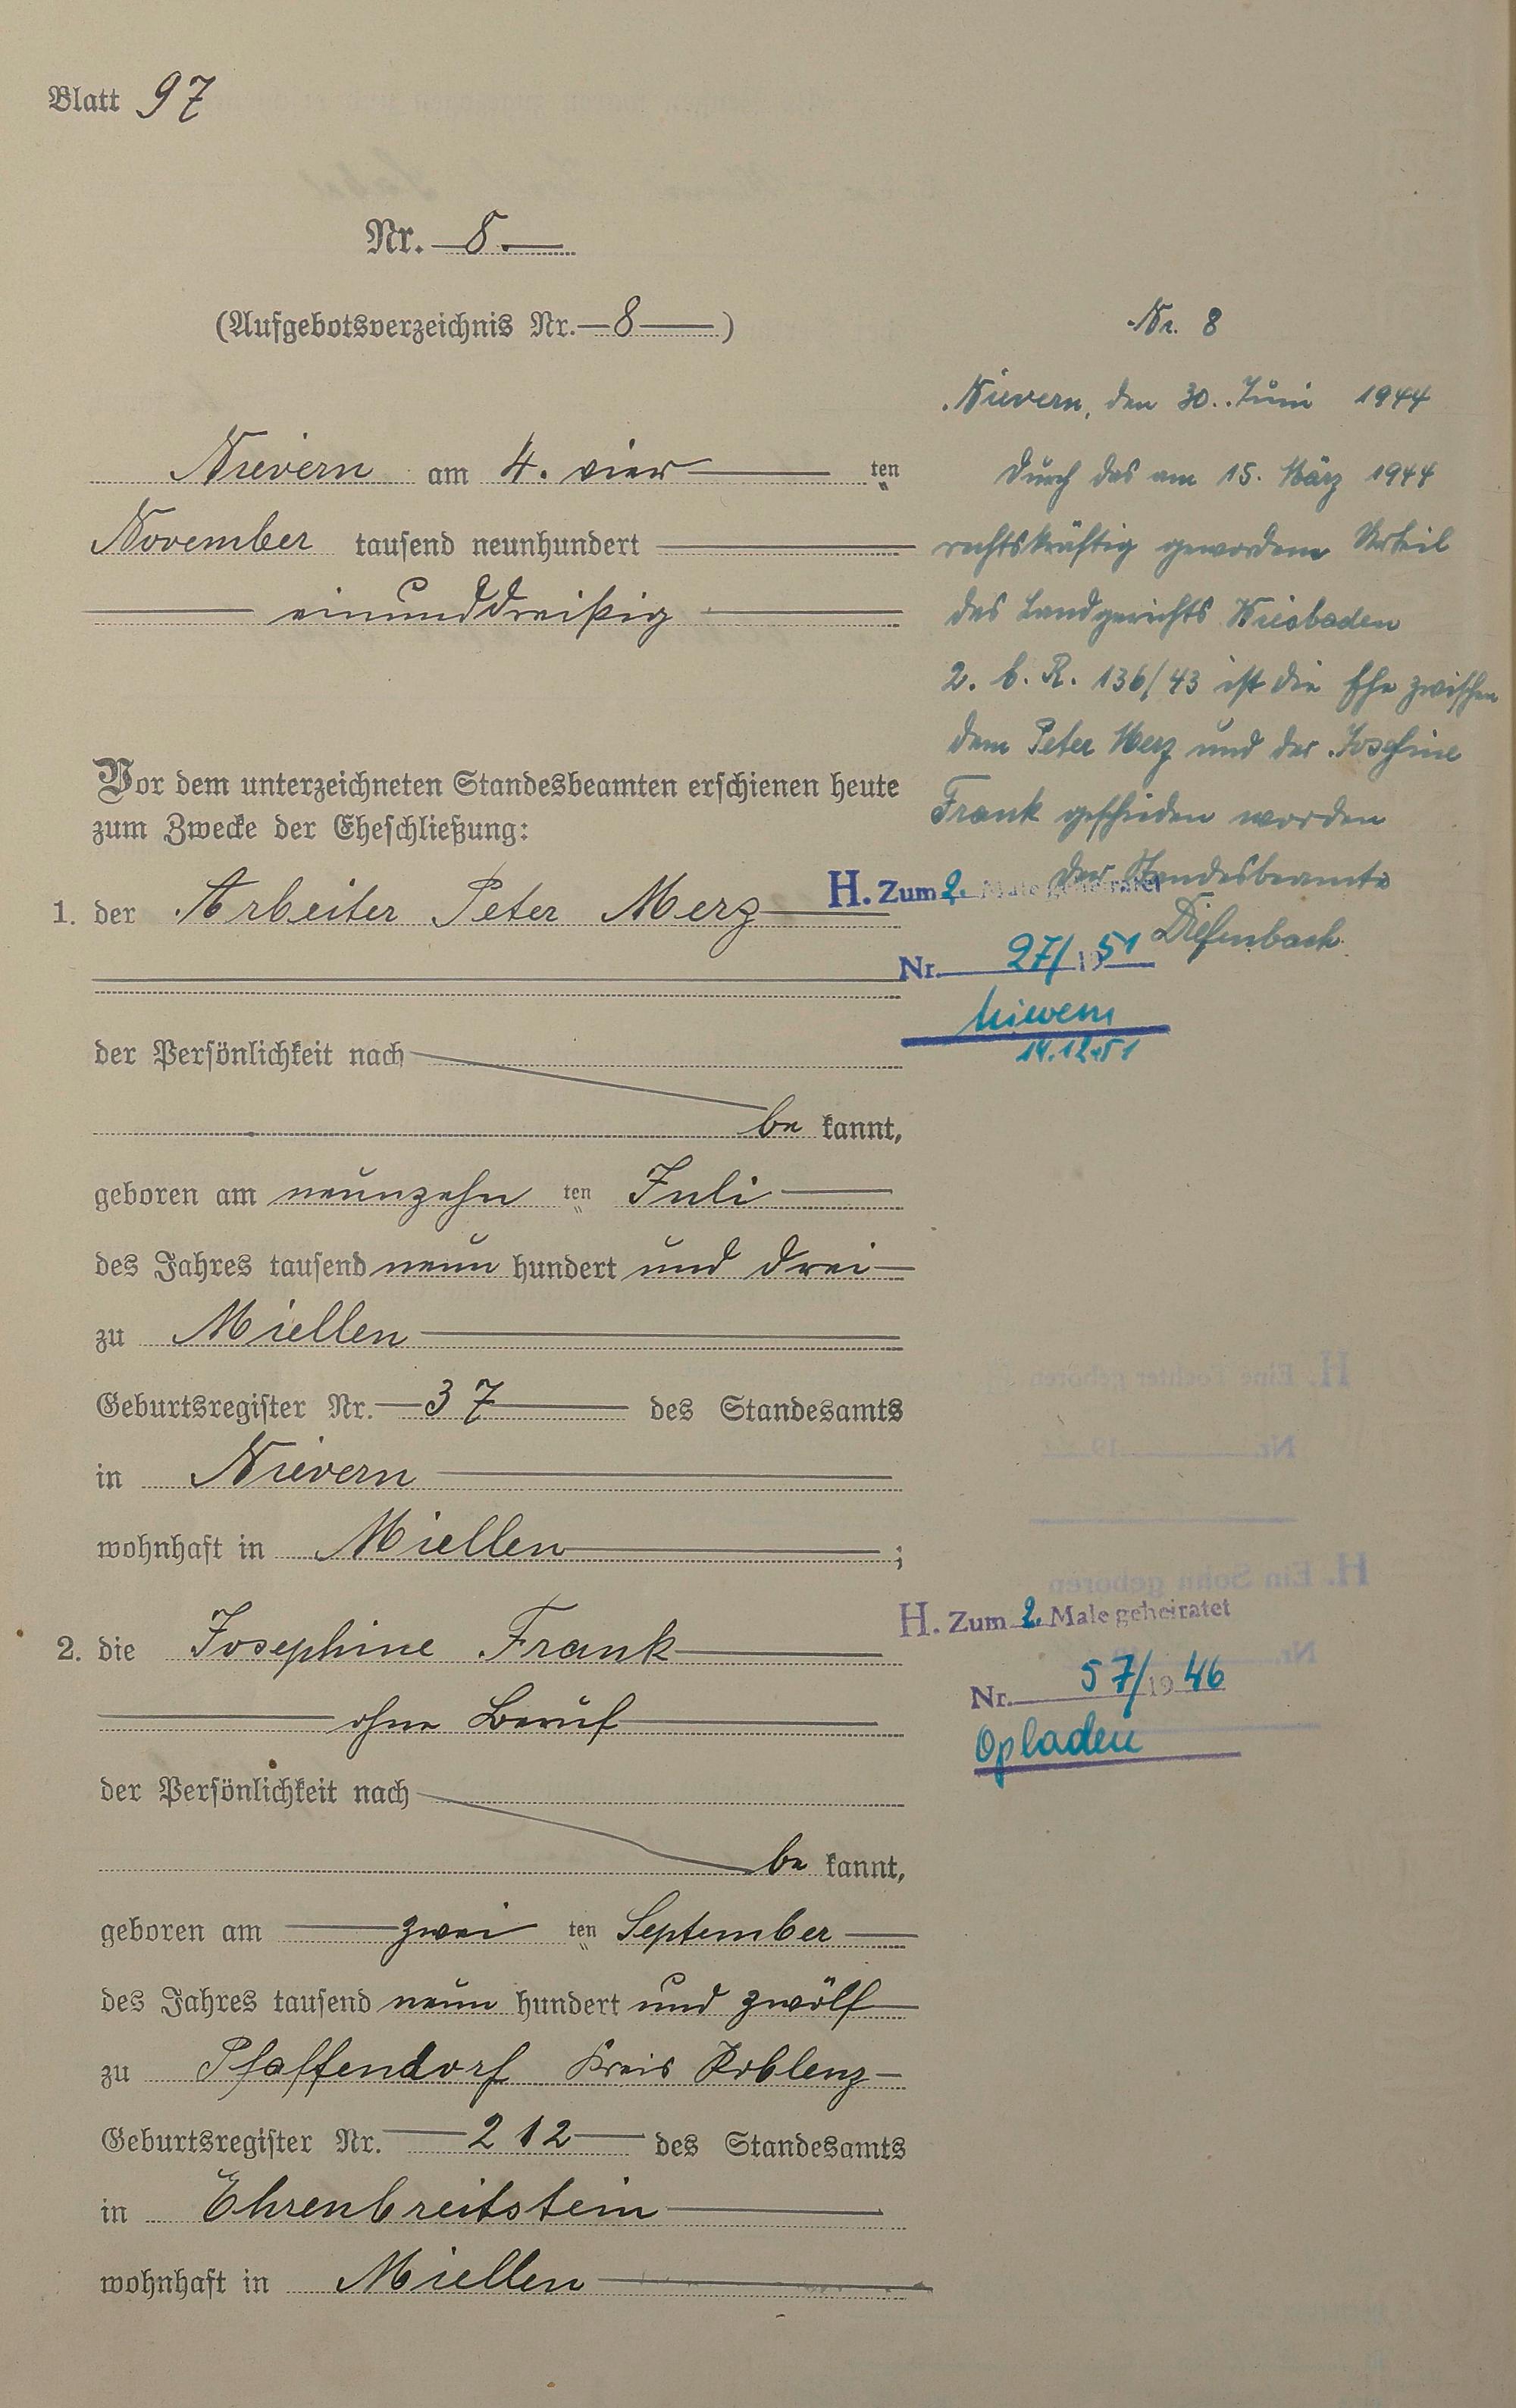 Blatt 97
Nr. 8.
(Aufgebotsverzeichnis Nr. 8)
Nievern am 4. vier ten
November tausend neunhundert
einunddreißig
Vor dem unterzeichneten Standesbeamten erschienen heute
zum Zwecke der Eheschließung:
1. der Arbeiter Peter Merz
der Persönlichkeit nach
be kannt,
geboren am neunzehn ten Juli
des Jahres tausend neun hundert und drei
zu Miellen
Geburtsregister Nr. 37 des Standesamts
in Nievern
wohnhaft in Miellen ;
2. die Josephine Frank
ohne Beruf
der Persönlichkeit nach
be kannt,
geboren am zwei ten September
des Jahres tausend neun hundert und zwölf
zu Pfaffendorf Kreis Koblenz
Geburtsregister Nr. 212 des Standesamts
in Ehrenbreitstein
wohnhaft in Miellen
Nr. 8
Nievern, den 30. Juni 1944
Durch das am 15. März 1944
rechtskräftig gewordene Urteil
des Landgerichts Wiesbaden
2. b. R. 136/43 ist die Ehe zwischen
dem Peter Merz und der Josefine
Frank geschieden worden
Der Standesbeamte
Diefenbach
H. Zum 2. Male geheiratet
Nr. 27/1951
Nievern
14.12.51
H. Zum 2. Male geheiratet
Nr. 57/1946
Opladen